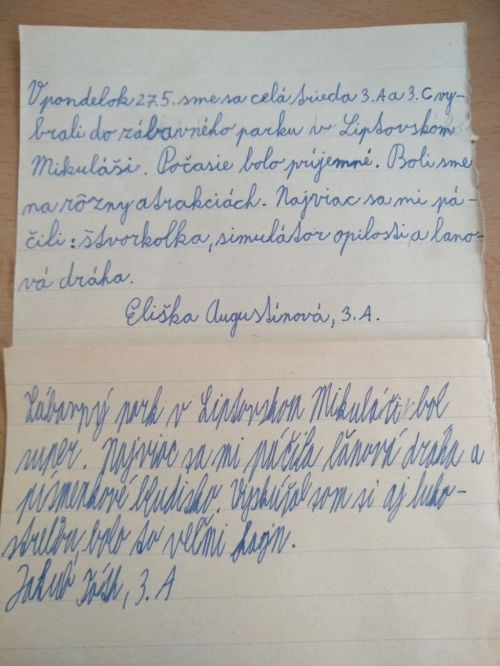 V pondelok 27.5. sme sa celá trieda 3.A a 3.C vy-
brali do zábavného parku v Liptovskom
Mikuláši. Počasie bolo príjemné. Boli sme
na rôzny atrakciách. Najviac sa mi pá-
čili: štvorkolka, simulátor opilosti a lano-
vá dráha.
Eliška Augustínová, 3.A.
Zábavný park v Liptovskom Mikuláši bol
super. Najviac sa mi páčila lanová dráha a
písmenkové bludisko. Vyskúšal som si aj luko-
streľbu, bolo to veľmi fajn.
Jakub Tóth, 3.A